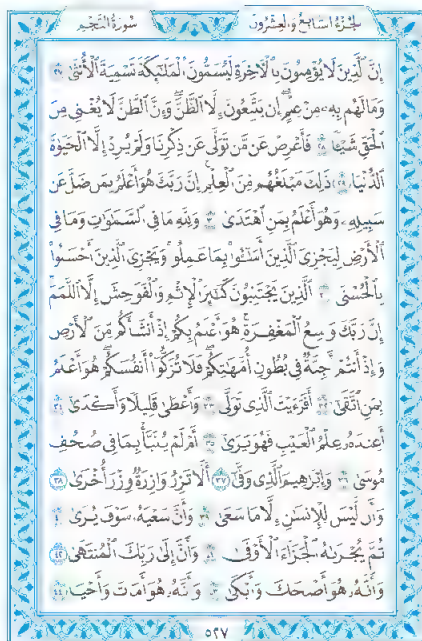 الجزء السابع والعشرون
سورة النجم
إِنَّ الَّذِينَ لَا يُؤْمِنُونَ بِالْآخِرَةِ لَيُسَمُّونَ الْمَلَائِكَةَ تَسْمِيَةَ الْأُنْثَىٰ ٢٧
وَمَا لَهُم بِهِ مِنْ عِلْمٍ إِن يَتَّبِعُونَ إِلَّا الظَّنَّ وَإِنَّ الظَّنَّ لَا يُغْنِي مِنَ
الْحَقِّ شَيْئًا ٢٨ فَأَعْرِضْ عَن مَّن تَوَلَّىٰ عَن ذِكْرِنَا وَلَمْ يُرِدْ إِلَّا الْحَيَوٰةَ
الدُّنْيَا ٢٩ ذَٰلِكَ مَبْلَغُهُم مِّنَ الْعِلْمِ إِنَّ رَبَّكَ هُوَ أَعْلَمُ بِمَن ضَلَّ عَن
سَبِيلِهِ وَهُوَ أَعْلَمُ بِمَنِ اهْتَدَىٰ ٣٠ وَلِلَّهِ مَا فِي السَّمَٰوَٰتِ وَمَا فِي
الْأَرْضِ لِيَجْزِيَ الَّذِينَ أَسَٰٓـُٔوا بِمَا عَمِلُوا وَيَجْزِيَ الَّذِينَ أَحْسَنُوا
بِالْحُسْنَى ٣١ الَّذِينَ يَجْتَنِبُونَ كَبَٰٓئِرَ الْإِثْمِ وَالْفَوَٰحِشَ إِلَّا اللَّمَمَ
إِنَّ رَبَّكَ وَٰسِعُ الْمَغْفِرَةِ هُوَ أَعْلَمُ بِكُمْ إِذْ أَنشَأَكُم مِّنَ الْأَرْضِ
وَإِذْ أَنتُمْ أَجِنَّةٌ فِي بُطُونِ أُمَّهَٰتِكُمْ فَلَا تُزَكُّوا أَنفُسَكُمْ هُوَ أَعْلَمُ
بِمَنِ اتَّقَىٰ ٣٢ أَفَرَءَيْتَ الَّذِي تَوَلَّىٰ ٣٣ وَأَعْطَىٰ قَلِيلًا وَأَكْدَىٰ ٣٤
أَعِندَهُ عِلْمُ الْغَيْبِ فَهُوَ يَرَىٰ ٣٥ أَمْ لَمْ يُنَبَّأْ بِمَا فِي صُحُفِ
مُوسَىٰ ٣٦ وَإِبْرَٰهِيمَ الَّذِي وَفَّىٰ ٣٧ أَلَّا تَزِرُ وَازِرَةٌ وِزْرَ أُخْرَىٰ ٣٨
وَأَن لَّيْسَ لِلْإِنسَٰنِ إِلَّا مَا سَعَىٰ ٣٩ وَأَنَّ سَعْيَهُ سَوْفَ يُرَىٰ ٤٠
ثُمَّ يُجْزَىٰهُ الْجَزَآءَ الْأَوْفَىٰ ٤١ وَأَنَّ إِلَىٰ رَبِّكَ الْمُنتَهَىٰ ٤٢
وَأَنَّهُ هُوَ أَضْحَكَ وَأَبْكَىٰ ٤٣ وَأَنَّهُ هُوَ أَمَاتَ وَأَحْيَا ٤٤
٥٢٧